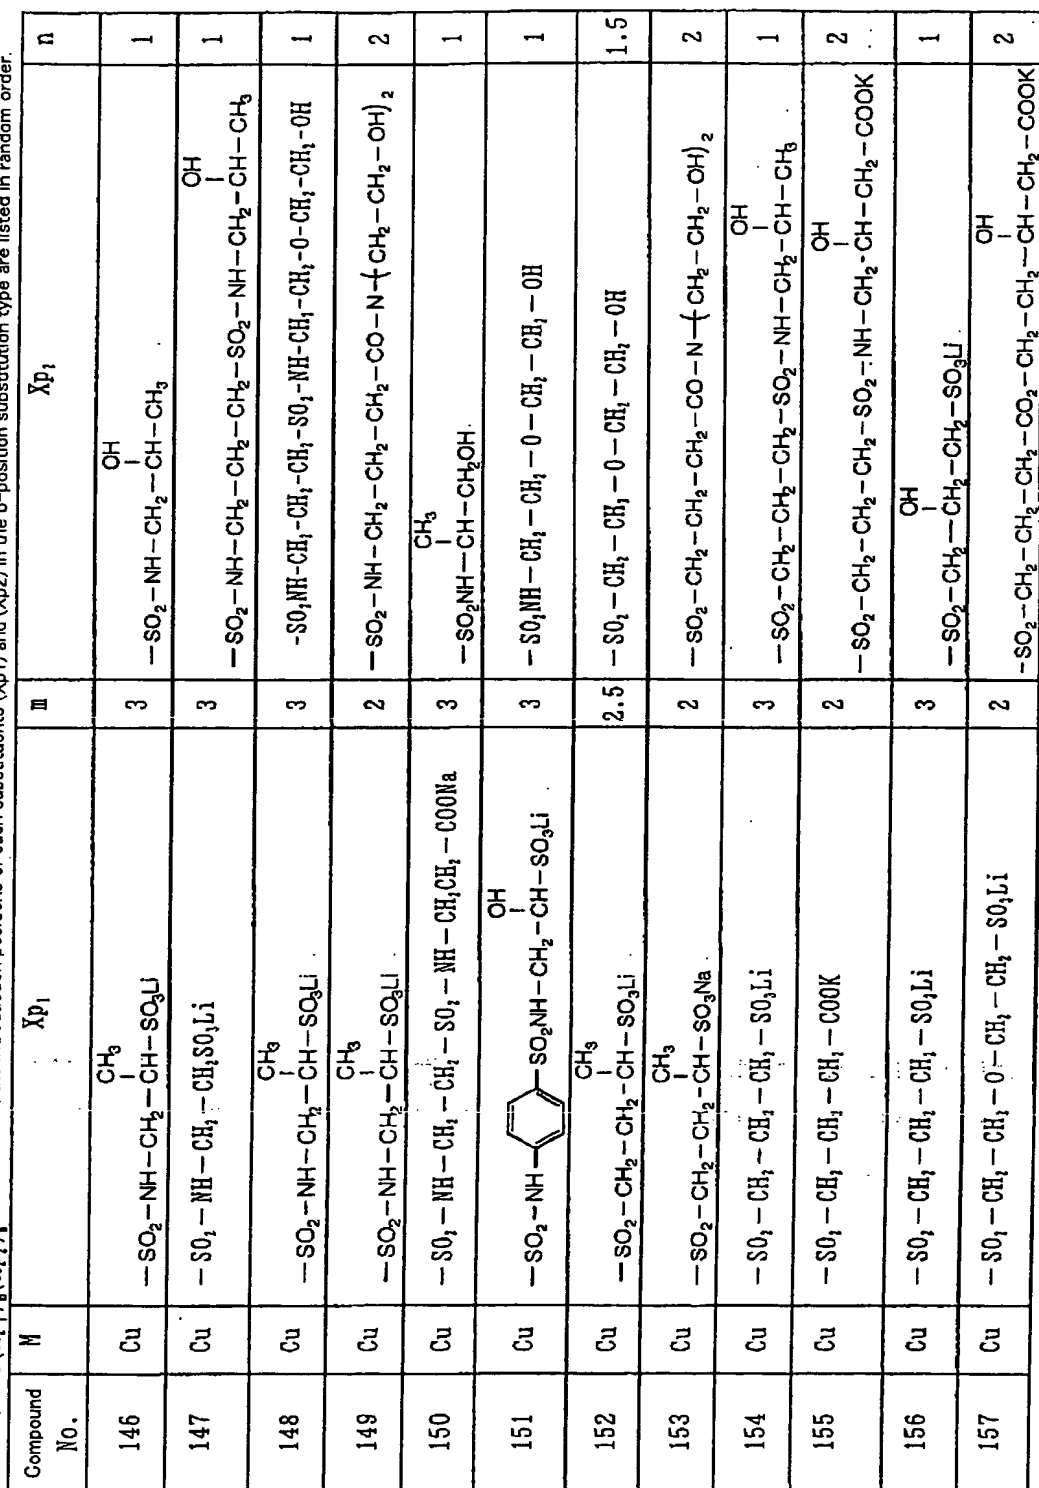 substitution positions of each substituents (Xp1) and (Xp2) in the β-position substitution type are listed in random order.
Compound No. M Xp₁ m Xp₂ n
CH₃ OH
146 Cu —SO₂–NH–CH₂–CH–SO₃Li 3 —SO₂–NH–CH₂–CH–CH₃ 1
OH
147 Cu –SO₂–NH–CH₂–CH₂SO₃Li 3 —SO₂–NH–CH₂–CH₂–CH₂–SO₂–NH–CH₂–CH–CH₃ 1
CH₃
148 Cu —SO₂–NH–CH₂–CH–SO₃Li 3 -SO₂NH-CH₂-CH₂-CH₂-SO₂-NH-CH₂-CH₂-O-CH₂-CH₂-OH 1
CH₃
149 Cu —SO₂–NH–CH₂–CH–SO₃Li 2 —SO₂–NH–CH₂–CH₂–CH₂–CO–N–(CH₂–CH₂–OH)₂ 2
CH₃
150 Cu –SO₂–NH–CH₂–CH₂–SO₂–NH–CH₂CH₂–COONa 3 —SO₂NH–CH–CH₂OH 1
OH
151 Cu —SO₂–NH– –SO₂NH–CH₂–CH–SO₃Li 3 –SO₂NH–CH₂–CH₂–O–CH₂–CH₂–OH 1
CH₃
152 Cu —SO₂–CH₂–CH₂–CH–SO₃Li 2.5 –SO₂–CH₂–CH₂–O–CH₂–CH₂–OH 1.5
CH₃
153 Cu —SO₂–CH₂–CH₂–CH–SO₃Na 2 —SO₂–CH₂–CH₂–CH₂–CO–N–(CH₂–CH₂–OH)₂ 2
OH
154 Cu –SO₂–CH₂–CH₂–CH₂–SO₃Li 3 —SO₂–CH₂–CH₂–CH₂–SO₂–NH–CH₂–CH–CH₃ 1
OH
155 Cu –SO₂–CH₂–CH₂–CH₂–COOK 2 —SO₂–CH₂–CH₂–CH₂–SO₂–NH–CH₂–CH–CH₂–COOK 2
OH
156 Cu –SO₂–CH₂–CH₂–CH₂–SO₃Li 3 —SO₂–CH₂–CH₂–CH₂–SO₃Li 1
OH
157 Cu –SO₂–CH₂–CH₂–O–CH₂–CH₂–SO₃Li 2 –SO₂–CH₂–CH₂–CH₂–CO₂–CH₂–CH₂–CH₂–CH–CH₂–COOK 2